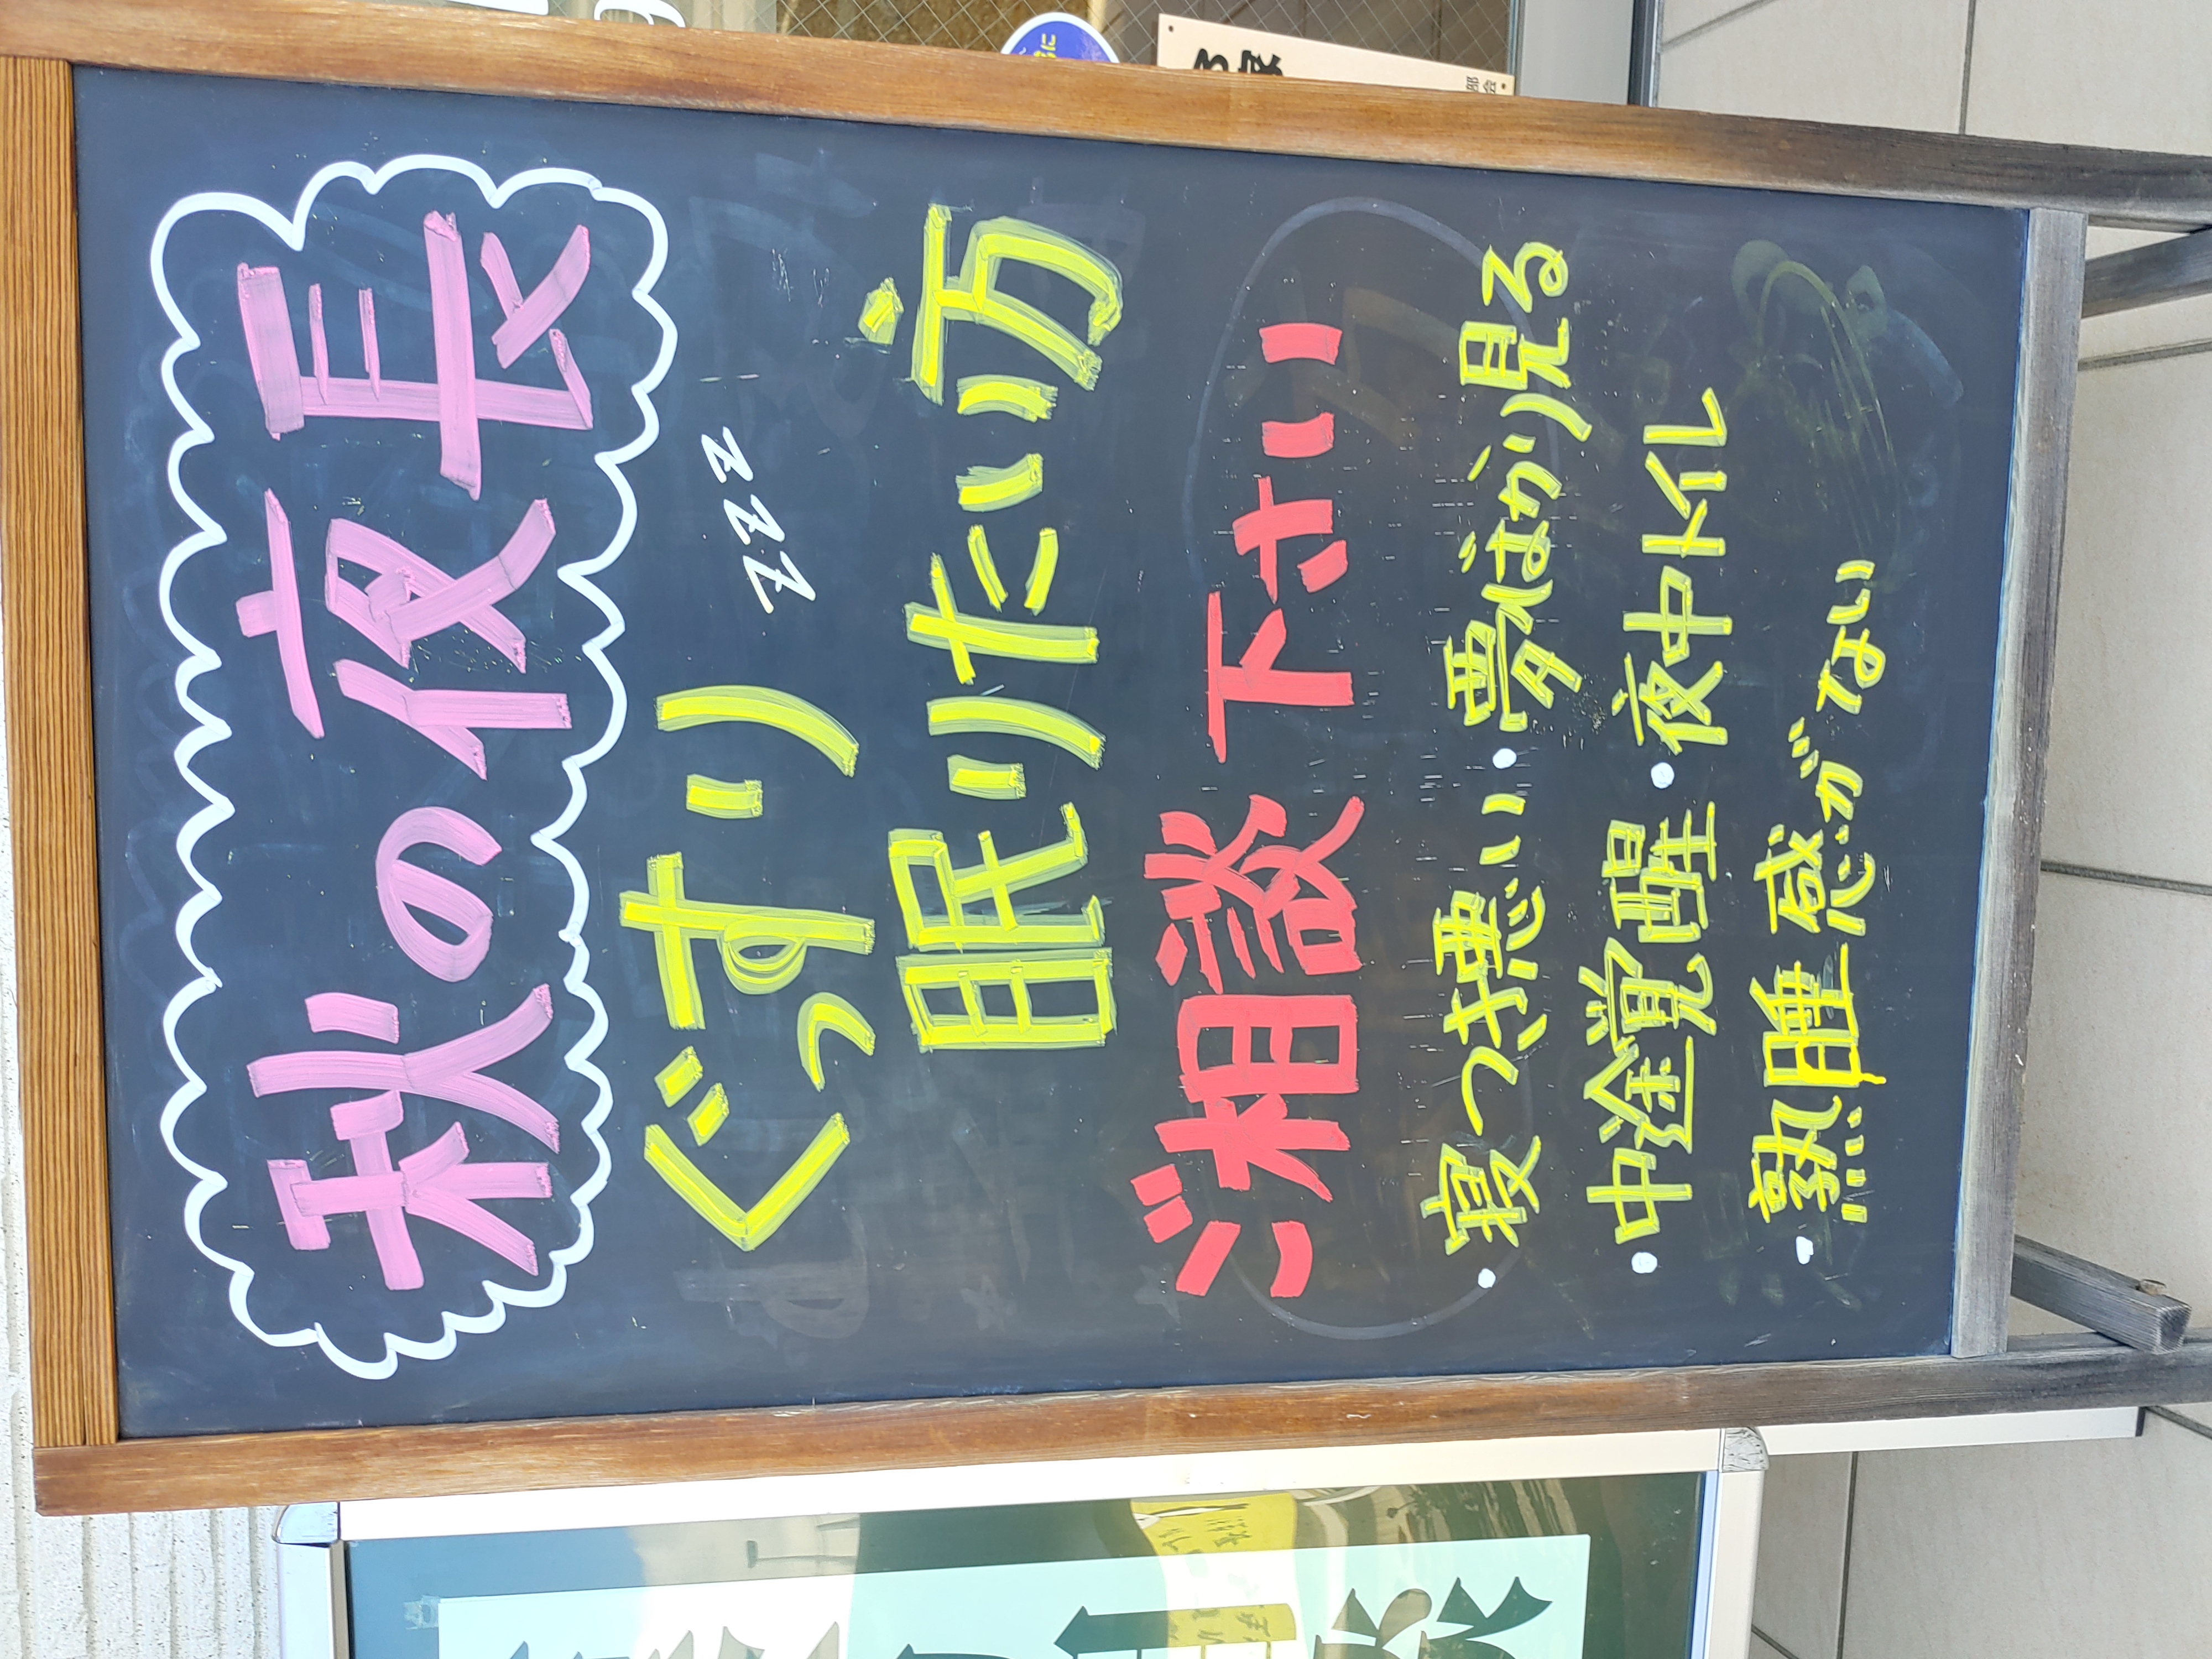 秋の夜長
ぐっすり zzz
眠りたい方
ご相談下さい
・寝つき悪い・夢ばかり見る
・中途覚醒・夜中トイレ
・熟睡感がない